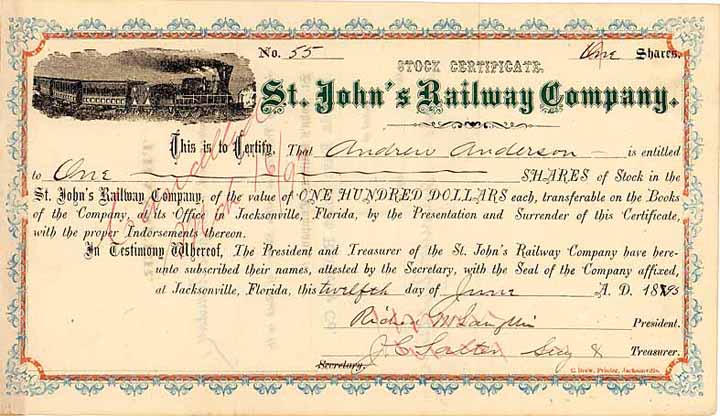 No. 55 One Shares.
STOCK CERTIFICATE.
St. John's Railway Company.
This is to Certify, That Andrew Anderson is entitled
to One SHARES of Stock in the
St. John's Railway Company, of the value of ONE HUNDRED DOLLARS each, transferable on the Books
of the Company, at its Office in Jacksonville, Florida, by the Presentation and Surrender of this Certificate,
with the proper Indorsements thereon.
In Testimony Whereof, The President and Treasurer of the St. John's Railway Company have here-
unto subscribed their names, attested by the Secretary, with the Seal of the Company affixed,
at Jacksonville, Florida, this twelfth day of June A. D. 1895
McLaughlin President.
J. C. Salter Secy & Treasurer.
Secretary.
C. Drew, Printer, Jacksonville.